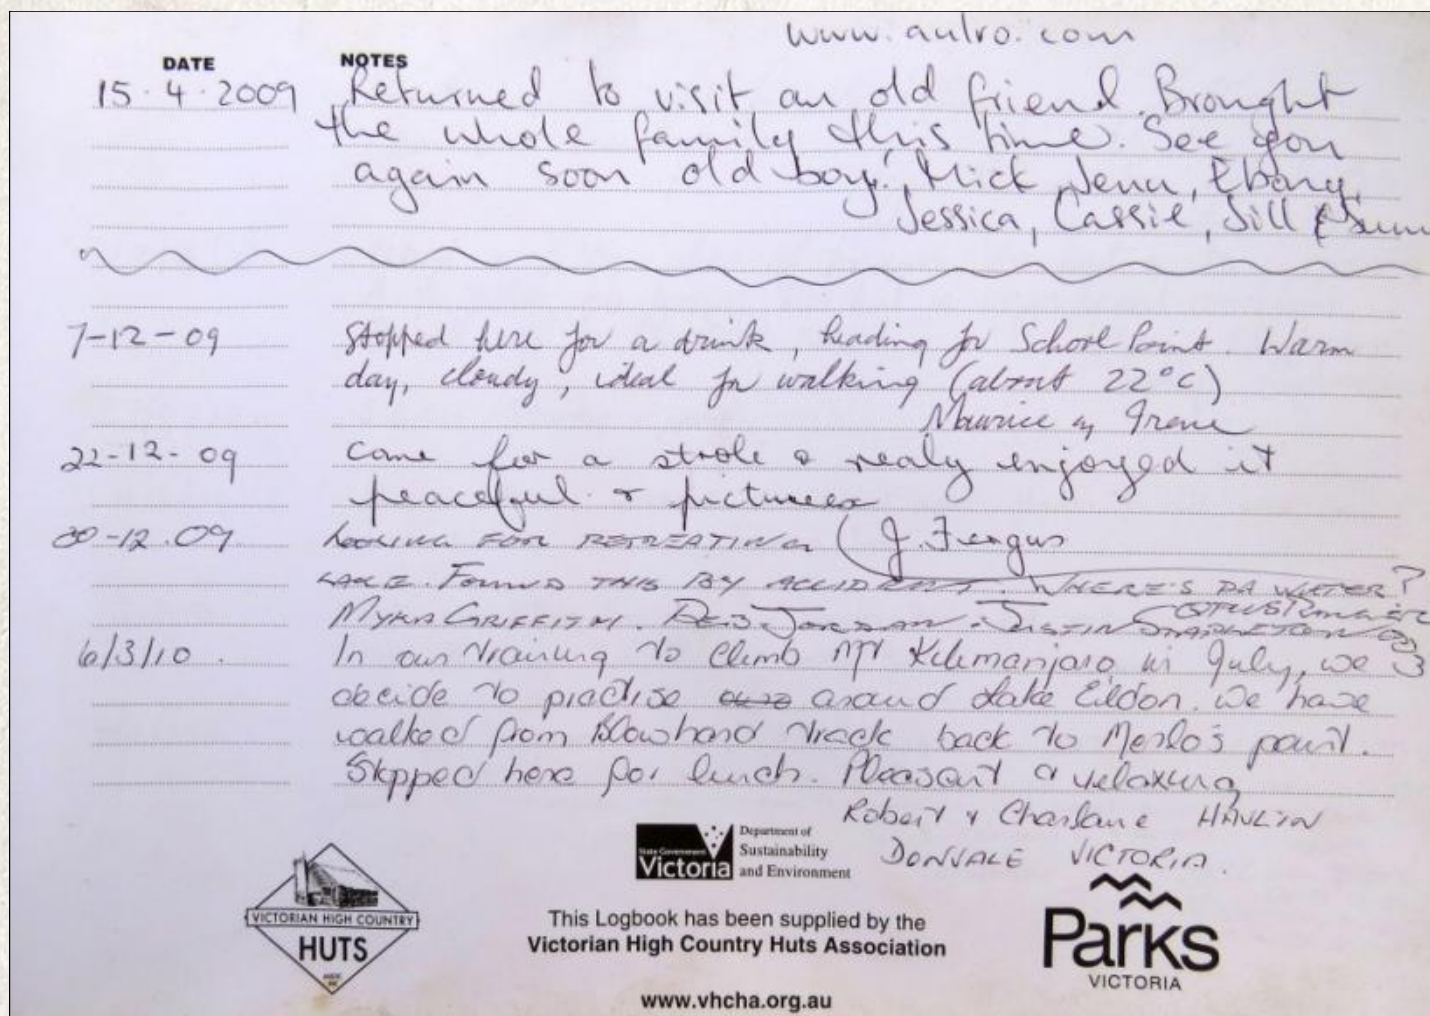 www.aulro.com
DATE NOTES
15.4.2009 Returned to visit an old friend. Brought
the whole family this time. See you
again soon old boy! Mick, Jenn, Ebony,
Jessica, Cassie, Jill &
7-12-09 Stopped here for a drink, heading for School Point. Warm
day, cloudy, ideal for walking (about 22°C)
Maurice & Irene
22-12-09 Came for a strole & realy enjoyed it
peaceful &
30-12.09 LOOKING FOR (J. Fergus
LAKE. FOUND THIS BY ACCIDENT. WHERE'S DA WATER?
MYKA GRIFFITH. JORDAN. JUSTIN STAPLETON
6/3/10. In our training to climb Mt Kilimanjaro in July, we
decide to practise around Lake Eildon. We have
walked from Blowhard Track back to Merlo's point.
Stopped here for lunch. Pleasant & relaxing
Robert & Charlane
DONVALE VICTORIA.
State Government
Victoria
Department of
Sustainability
and Environment
VICTORIAN HIGH COUNTRY
HUTS
This Logbook has been supplied by the
Victorian High Country Huts Association
www.vhcha.org.au
Parks
VICTORIA